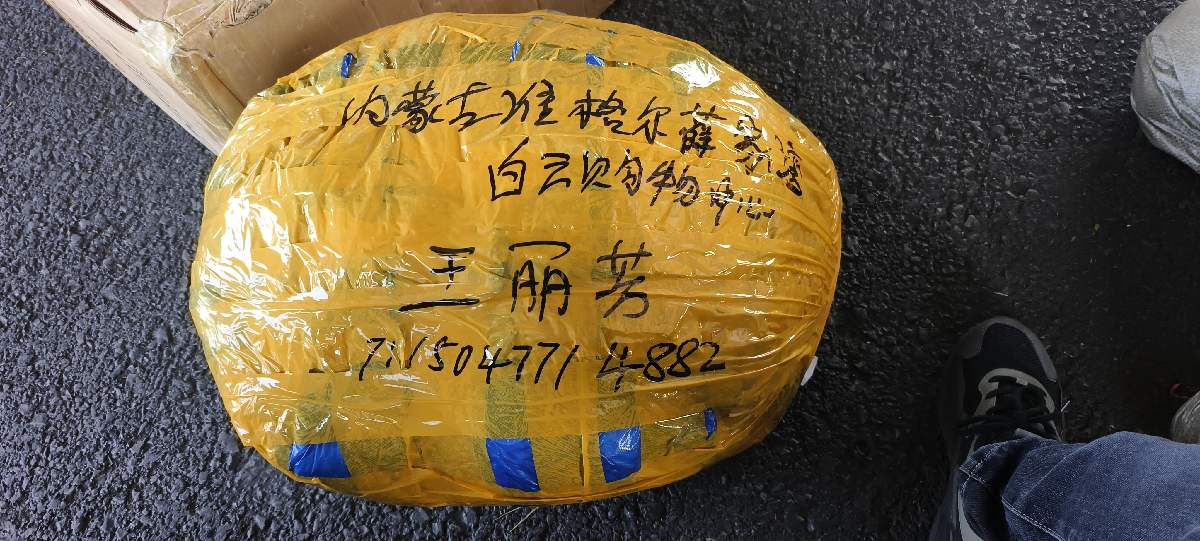 内蒙古准格尔薛家湾
白云购物中心
王丽芳
7115047714882